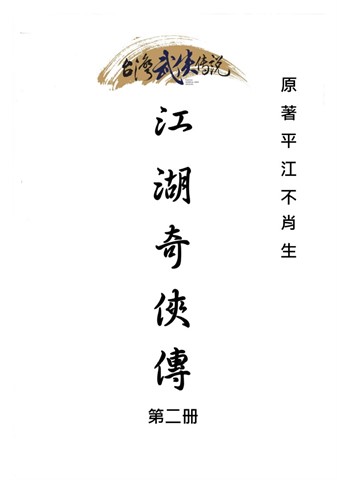 台灣武侠传説
江湖奇俠傳
第二册
原著平江不肖生